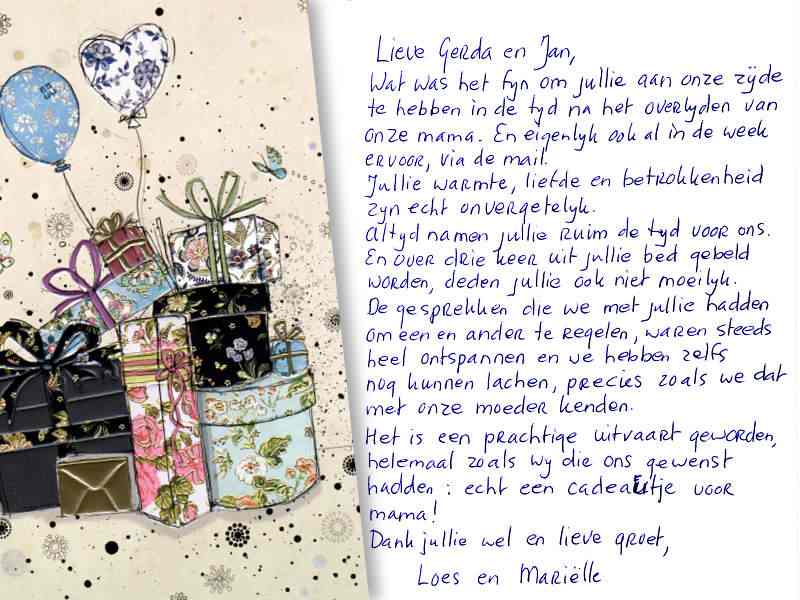 Lieve Gerda en Jan,
Wat was het fyn om jullie aan onze zyde
te hebben in de tyd na het overlyden van
onze mama. En eigenlyk ook al in de week
ervoor, via de mail.
Jullie warmte, liefde en betrokkenheid
zyn echt onvergetelyk.
Altyd namen jullie ruim de tyd voor ons.
En over drie keer uit jullie bed gebeld
worden, deden jullie ook niet moeilyk.
De gesprekken die we met jullie hadden
om een en ander te regelen, waren steeds
heel ontspannen en we hebben zelfs
nog kunnen lachen, precies zoals we dat
met onze moeder kenden.
Het is een prachtige uitvaart geworden,
helemaal zoals wy die ons gewenst
hadden : echt een cadeautje voor
mama!
Dank jullie wel en lieve groet,
Loes en Mariëlle